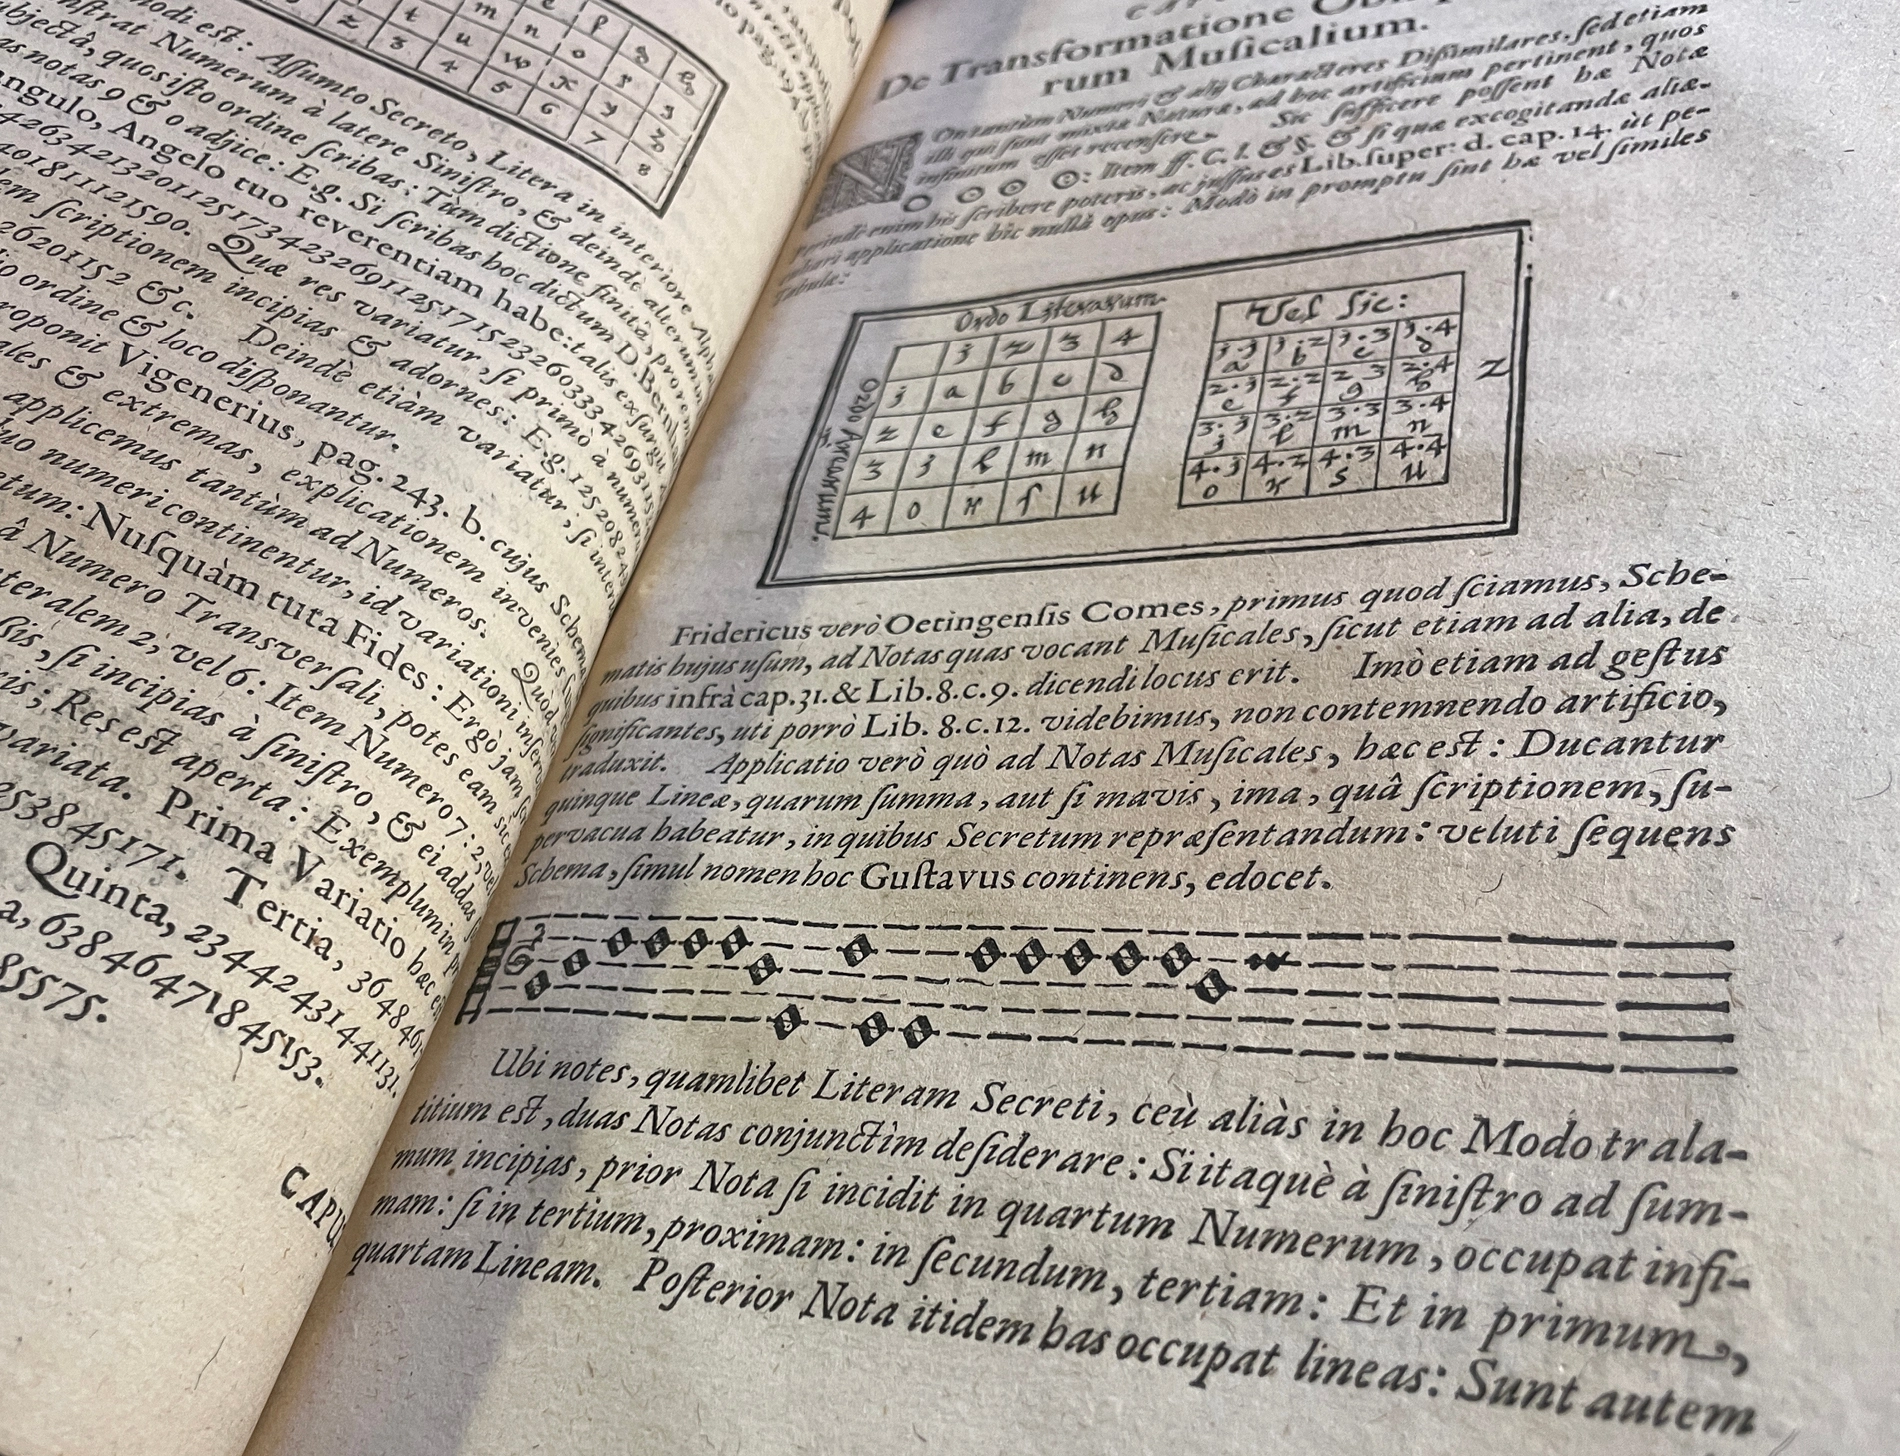 modi est: Assumto Secreto, Litera in interiore Alph
strat Numerum à latere Sinistro, & deinde alterum in
bjectâ, quos isto ordine scribas: Tùm dictione finitâ, prorem
as notas 9 & 0 adjice: E.g. Si scribas hoc dictum D. Bernha
ngulo, Angelo tuo reverentiam habe: talis exsurgit
401811121590. Quæ res variatur, si primò à numer
em scriptionem incipias & adornes: E.g. 12520824
2620115 2 &c. Deindè etiàm variatur, si inter
io ordine & loco disponantur.
roponit Vigenerius, pag. 243. b. cujus Schema
ales & extremas, explicationem invenies
applicemus tantùm ad Numeros. Quòd
uo numeri continentur, id variationi inserv
ctum: Nusquàm tuta Fides: Ergò jam
â Numero Transversali, potes eam sic
teralem 2, vel 6: Item Numero 7: 2, vel
ssis, si incipias à sinistro, & ei addas
ris; Res est aperta: Exemplum in
variata. Prima Variatio hæc e
e5384 5171. Tertia, 364846
Quinta, 2344243144 1131.
a, 63846471845153.
85575.
CAPU
m n o p q
t u w x y z
z 3 4 5 6 7 8
De Transformatione
rum Musicalium.
Non tantùm Numeri & alij Characteres Dissimilares, sed etiam
illi qui sunt mixtæ Naturæ, ad hoc artificium pertinent, quos
infinitum esset recensere. Sic sufficere possent hæ Notæ
Item ff. C. I. & §. & si quæ excogitandæ aliæ.
perindè enim his scribere poteris, ac jussus es Lib. super: d. cap. 14. ùt pe-
culiari applicatione hîc nullâ opus: Modò in promptu sint hæ vel similes
Tabulæ:
Ordo Literarum.
Ordo Arcuum.
1 2 3 4
1 a b c d
2 e f g h
3 i l m n
4 o r s u
Vel sic:
1.1 1.2 1.3 1.4
a b c d
2.1 2.2 2.3 2.4
e f g h
3.1 3.2 3.3 3.4
i l m n
4.1 4.2 4.3 4.4
o r s u
Z
Fridericus verò Oetingensis Comes, primus quod sciamus, Sche-
matis hujus usum, ad Notas quas vocant Musicales, sicut etiam ad alia, de
quibus infrà cap. 31. & Lib. 8. c. 9. dicendi locus erit. Imò etiam ad gestus
significantes, uti porrò Lib. 8. c. 12. videbimus, non contemnendo artificio,
traduxit. Applicatio verò quò ad Notas Musicales, hæc est: Ducantur
quinque Lineæ, quarum summa, aut si mavis, ima, quâ scriptionem, su-
pervacua habeatur, in quibus Secretum repræsentandum: veluti sequens
Schema, simul nomen hoc Gustavus continens, edocet.
Ubi notes, quamlibet Literam Secreti, ceù aliàs in hoc Modo trala-
titium est, duas Notas conjunctìm desiderare: Si itaquè à sinistro ad sum-
mum incipias, prior Nota si incidit in quartum Numerum, occupat infi-
mam: si in tertium, proximam: in secundum, tertiam: Et in primum,
quartam Lineam. Posterior Nota itidem has occupat lineas: Sunt autem